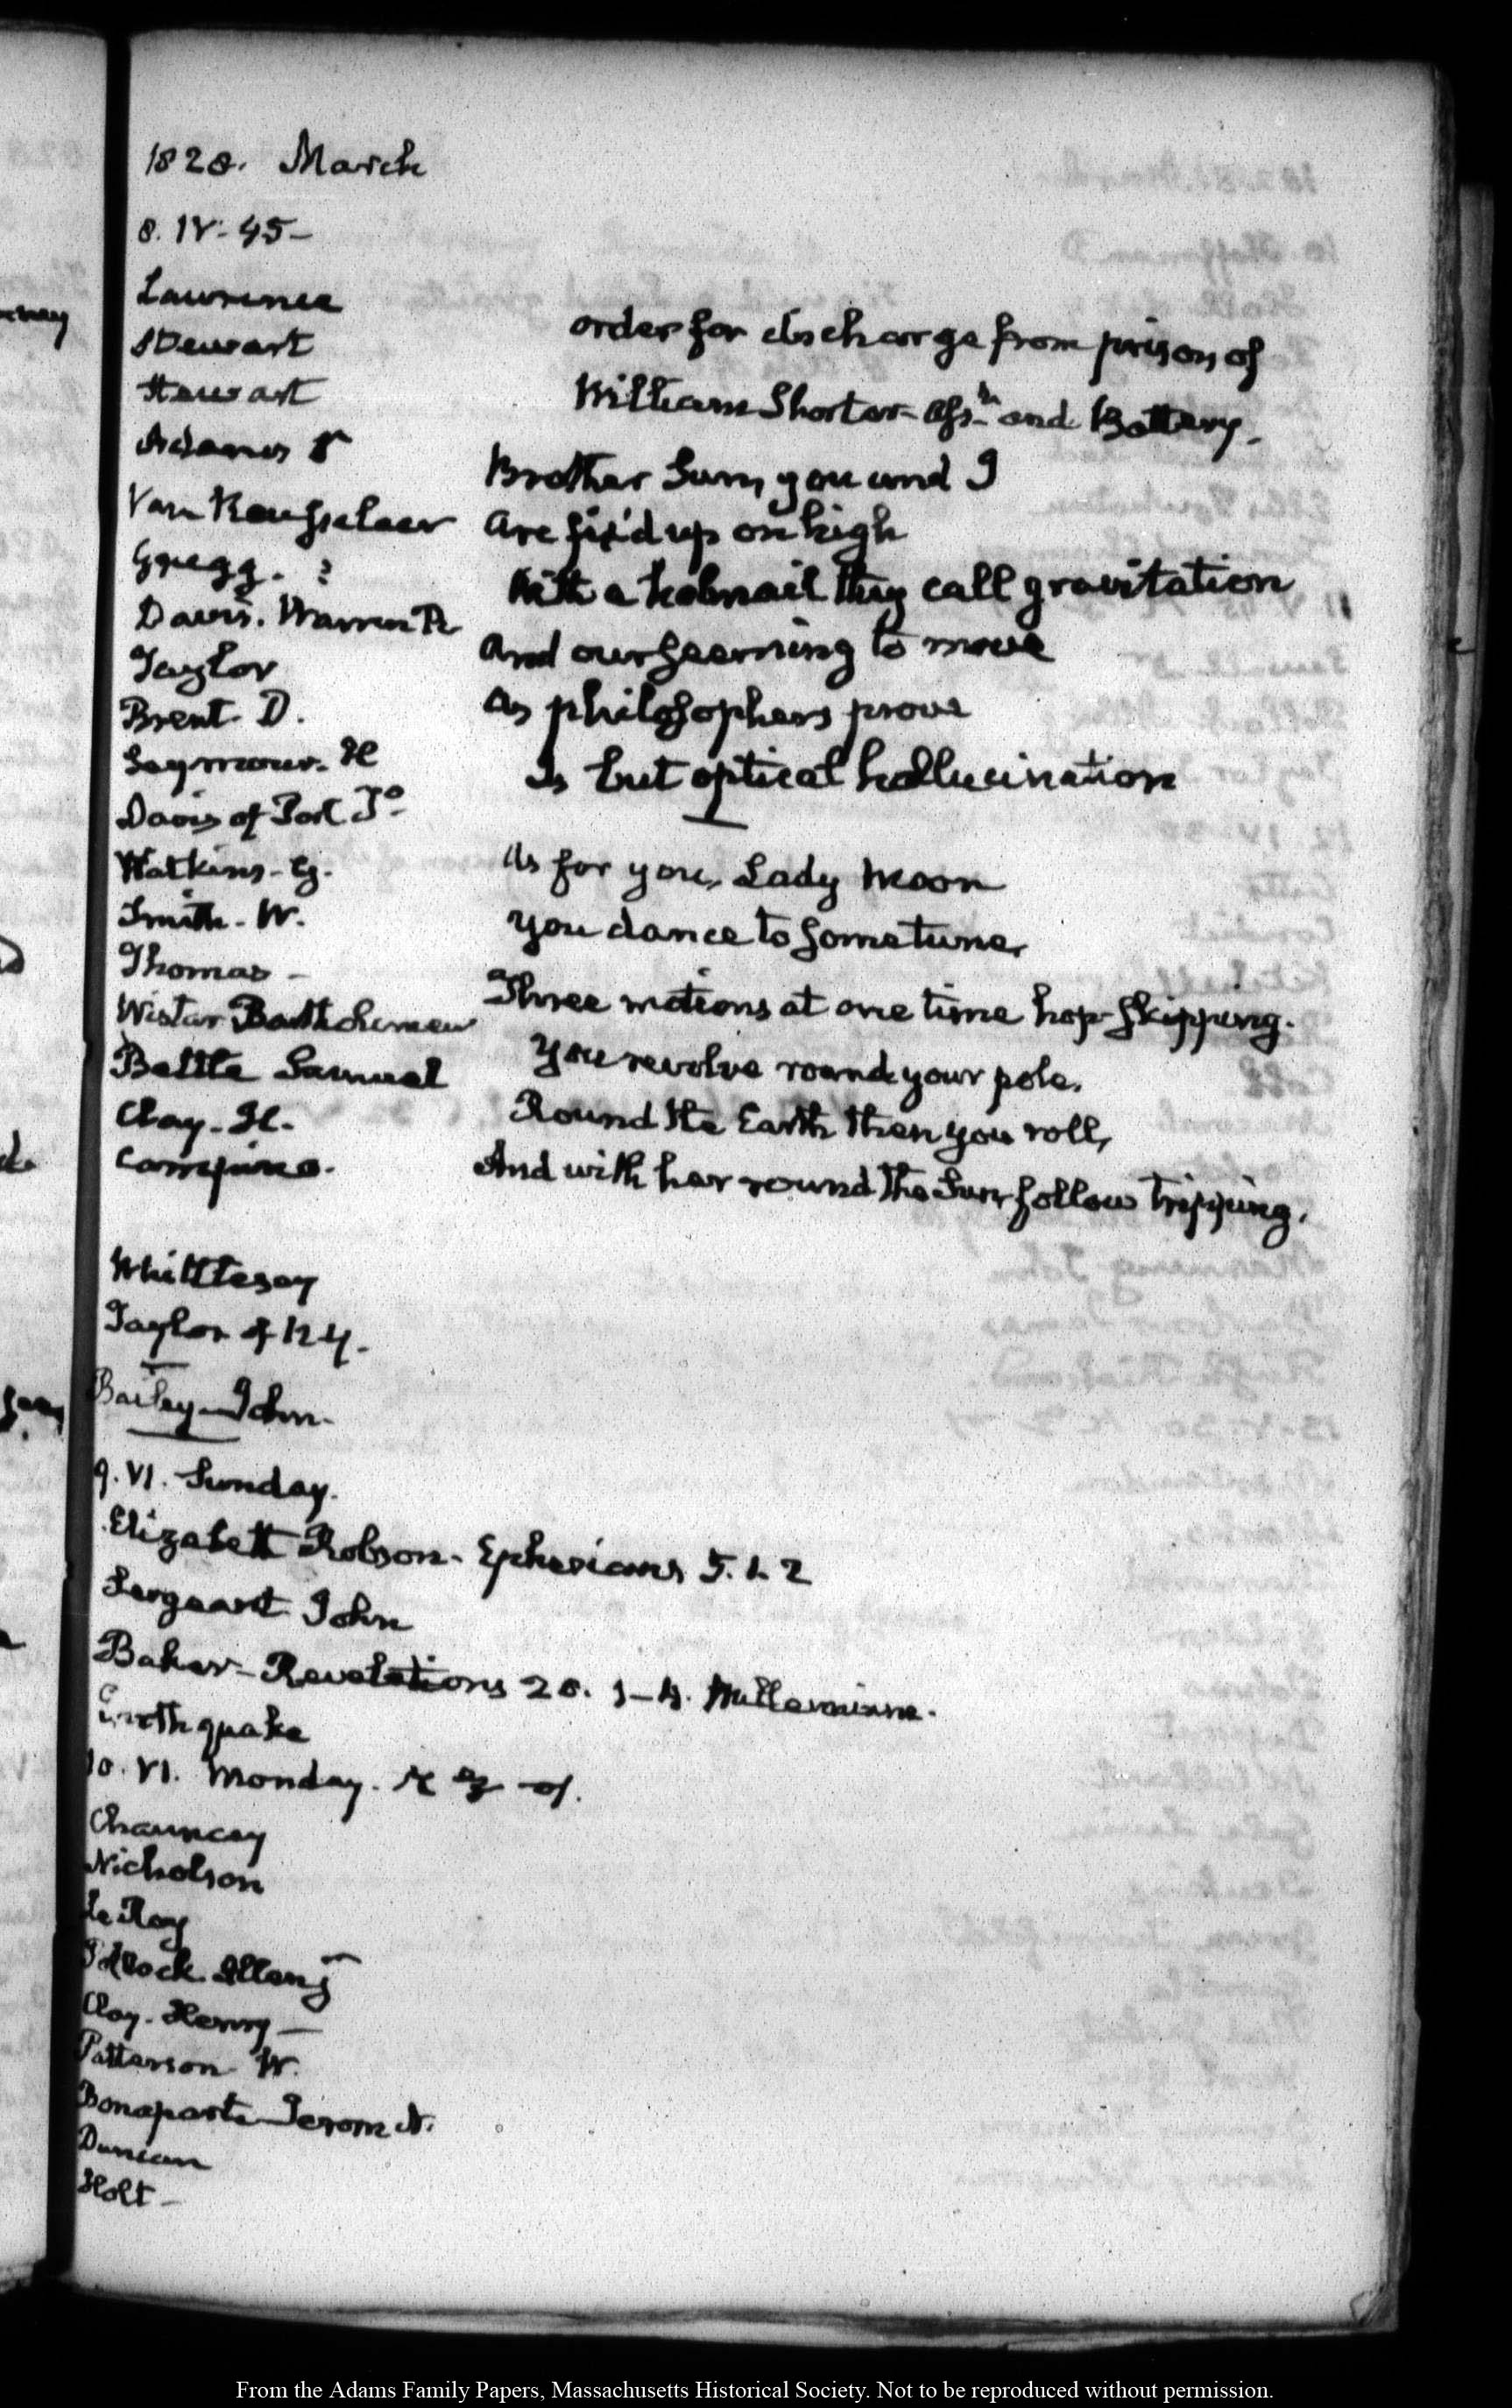 1828. March
8. IV. 45 –
Lawrence
Stewart
Stewart
Adams
Van Rensselaer
Gregg. ?
Davis. Warren R
Taylor
Brent. D.
Seymour. H
Davis of Port T.o
Watkins. G.
Smith. W.
Thomas –
Wistar Bartholomew
Bettle Samuel
Clay. H.
Whittlesey
Taylor of N.Y.
Bailey. John.
order for discharge from prison of
William Shorter Ass.lt and Battery.
Brother Sun, you and I
Are fix'd up on high
With a hobnail they call gravitation
And our seeming to move
As philosophers prove
Is but optical hallucination
As for you, Lady Moon
You dance to some tune,
Three motions at one time hop-skipping.
You revolve round your pole,
Round the Earth then you roll,
And with her round the Sun follow tripping.
9. VI. Sunday.
Elizabeth Robson. Ephesians 5. 1. 2
Sergeant John
Baker – Revelations 20. 1–4. Millennium.
Earthquake
10. VI. Monday.
Chauncey
Nicholson
Le Roy
Clay. Henry –
Patterson W.
Bonaparte Jerom N.
Duncan
Holt –
From the Adams Family Papers, Massachusetts Historical Society. Not to be reproduced without permission.